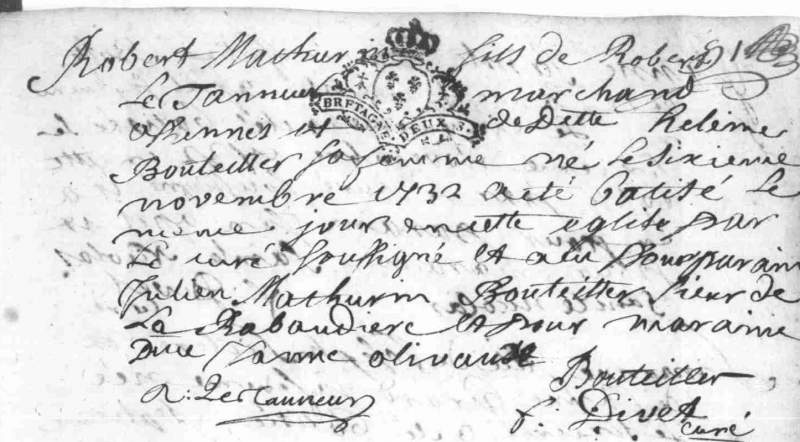 Robert Mathurin fils de Robert
Le Tanneur marchand
BRETAGNE DEUX S.
a Rennes et de Dlle Heleine
Bouteiller sa femme né le sixieme
novembre 1732 a eté batisé le
meme jour en cette eglise par
Le curé soussigné et a eu pour parain
Julien Mathurin Bouteiller sieur de
La Rabaudiere et pour maraine
Dlle Janne olivault
Bouteiller
R: Le Tanneur f. Divet
curé